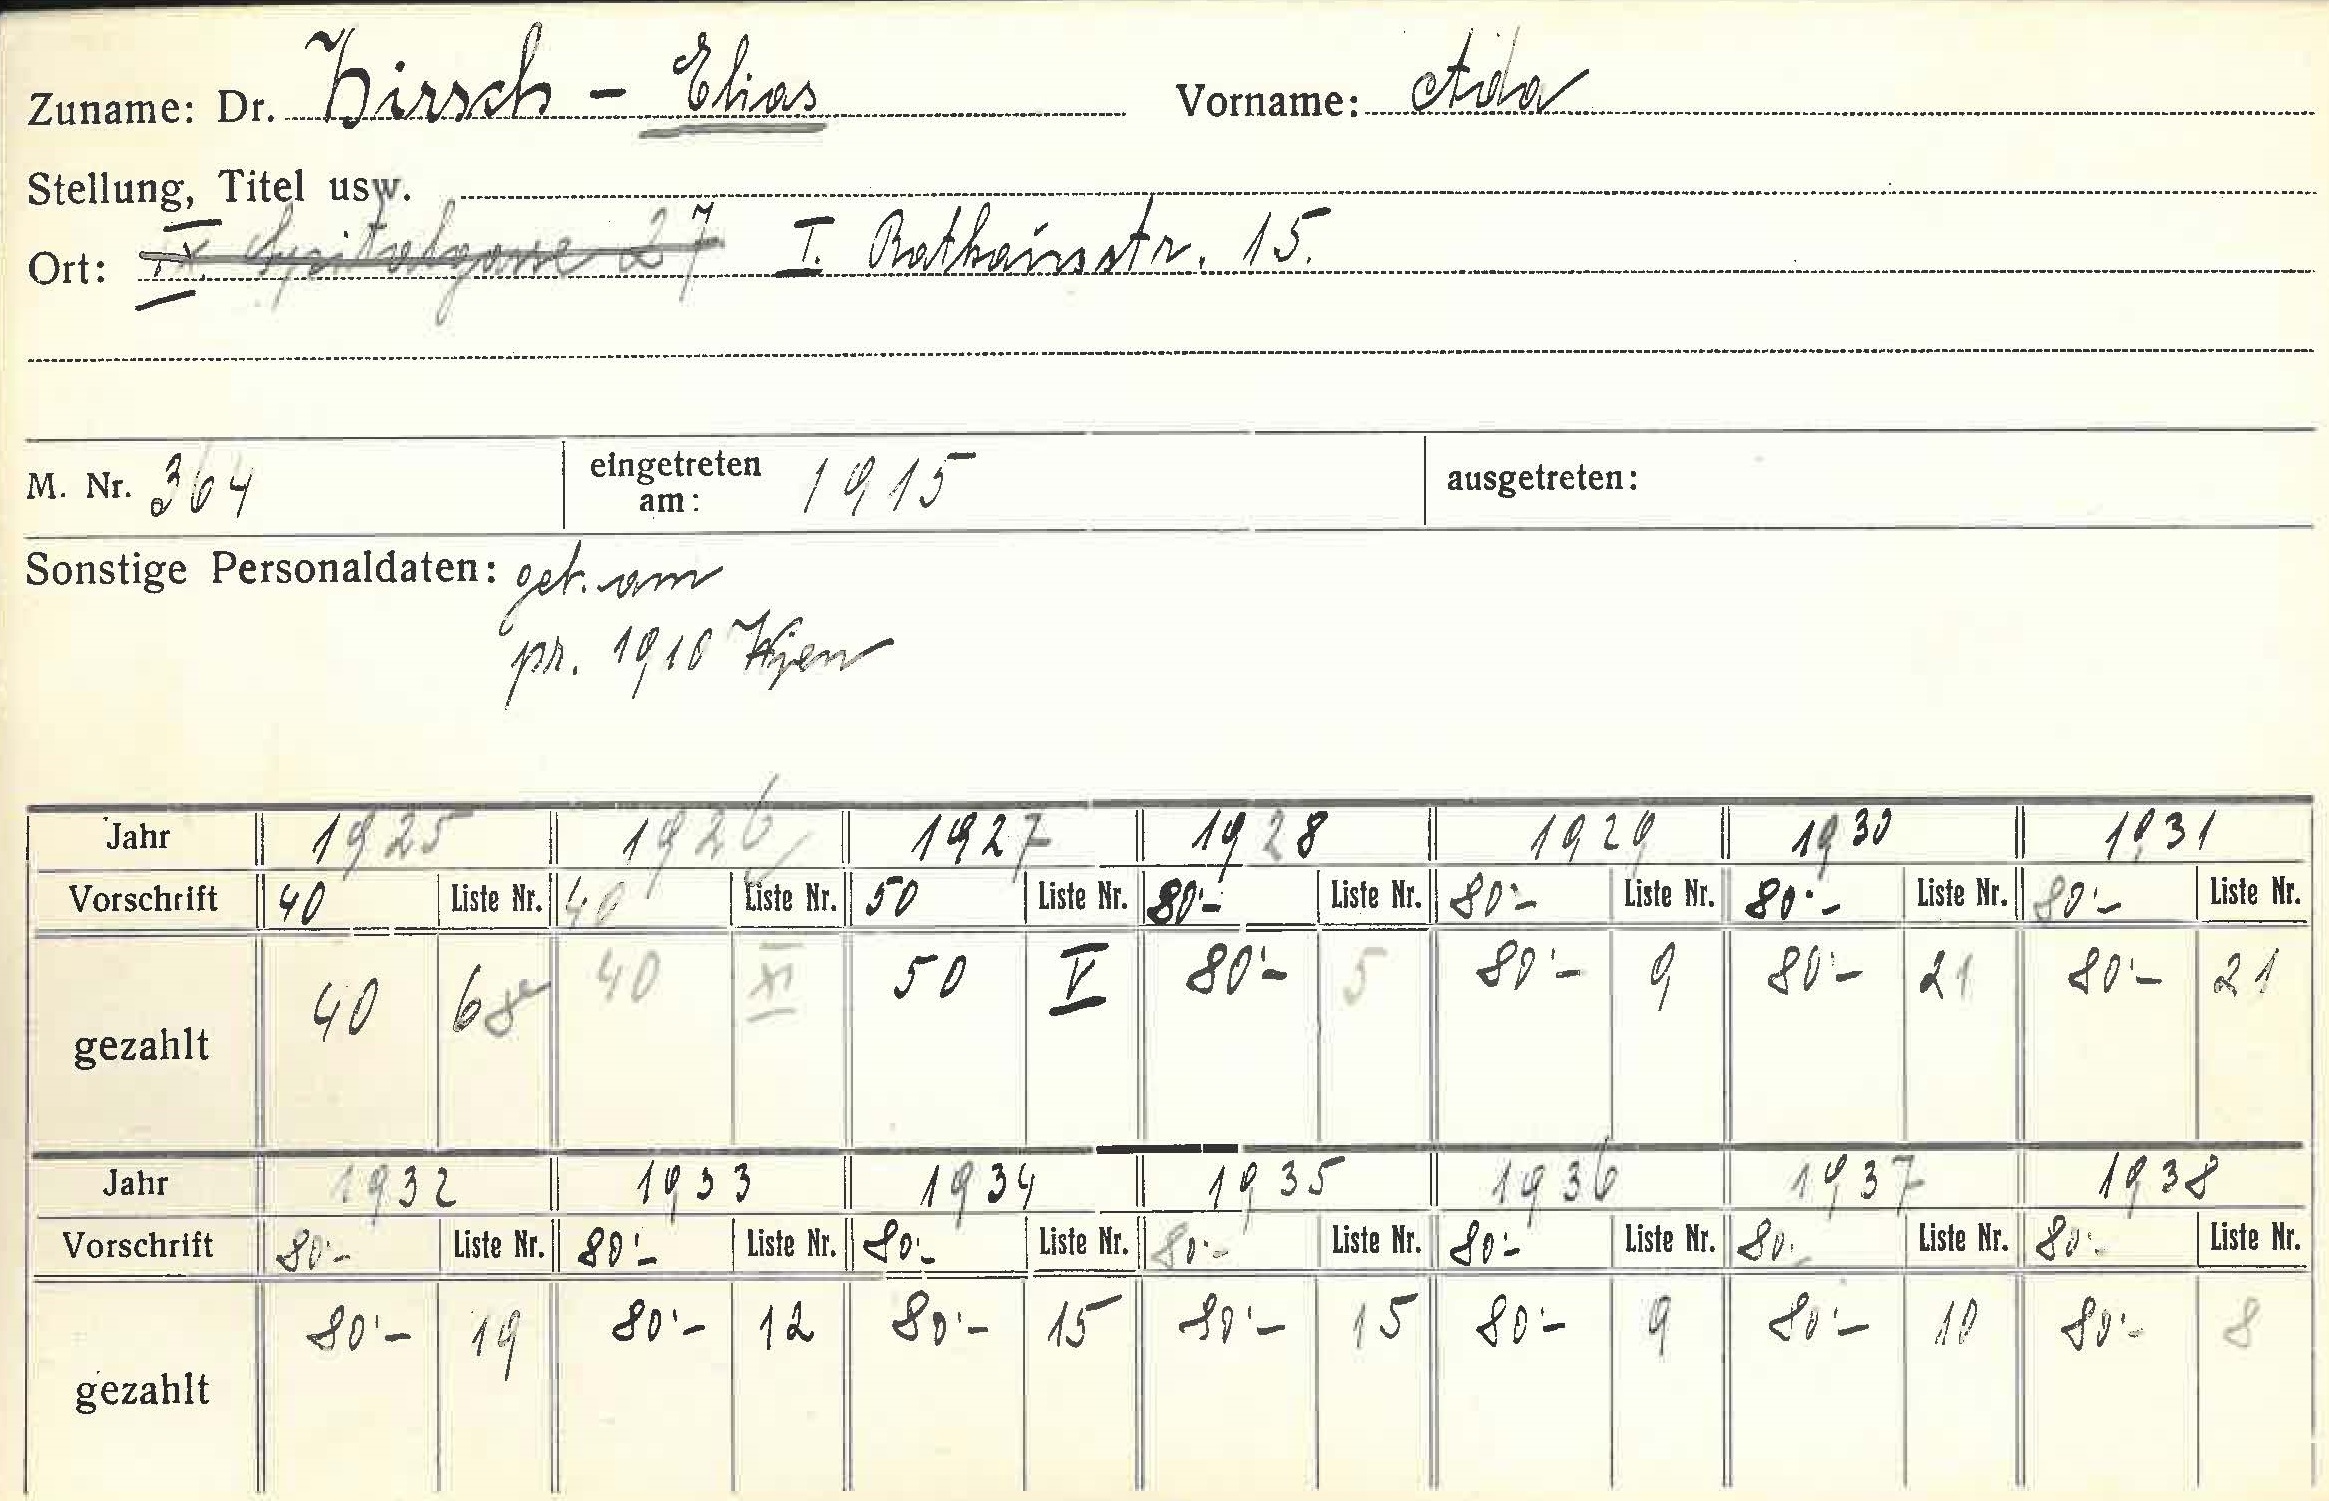 Zuname: Dr. Hirsch - Elias Vorname: Ada
Stellung, Titel usw.
Ort: IX. Spitalgasse 27 I. Rathausstr. 15.
M. Nr. 364 eingetreten am: 1915 ausgetreten:
Sonstige Personaldaten: geb. am
pr. 1910 Wien
Jahr 1925 1926 1927 1928 1929 1930 1931
Vorschrift 40 Liste Nr. 40 Liste Nr. 50 Liste Nr. 80·- Liste Nr. 80·- Liste Nr. 80·- Liste Nr. 80·- Liste Nr.
gezahlt 40 6 40 XI 50 V 80·- 5 80·- 9 80·- 21 80·- 21
Jahr 1932 1933 1934 1935 1936 1937 1938
Vorschrift 80·- Liste Nr. 80·- Liste Nr. 80·- Liste Nr. 80·- Liste Nr. 80·- Liste Nr. 80· Liste Nr. 80·- Liste Nr.
gezahlt 80·- 19 80·- 12 80·- 15 80·- 15 80·- 9 80·- 10 80·- 8